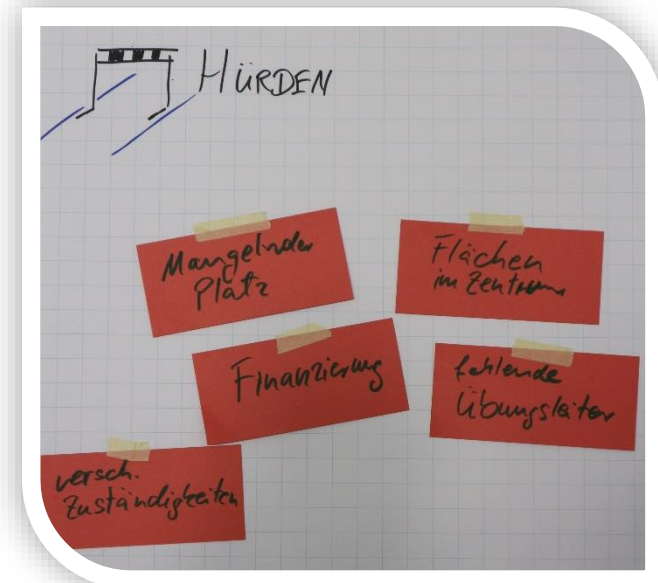 HÜRDEN
Mangelnder
Platz
Flächen
im Zentrum
Finanzierung
fehlende
Übungsleiter
versch.
Zuständigkeiten